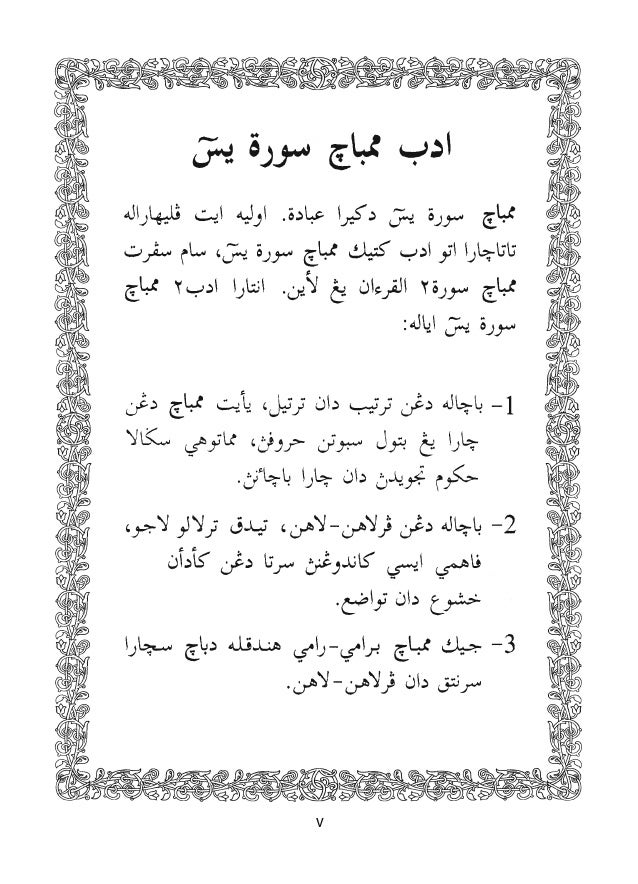 ادب ممباچ سورة يسٓ
ممباچ سورة يسٓ دكيرا عبادة. اوليه ايت ڤليهاراله
تاتاچارا اتو ادب كتيك ممباچ سورة يسٓ، سام سڤرت
ممباچ سورة٢ القرءان يڠ لأين. انتارا ادب٢ ممباچ
سورة يسٓ اياله:
1- باچاله دڠن ترتيب دان ترتيل، يأيت ممباچ دڠن
چارا يڠ بتول سبوتن حروفڽ، مماتوهي سݢالا
حكوم تجويدڽ دان چارا باچائنڽ.
2- باچاله دڠن ڤرلاهن-لاهن، تيدق ترلالو لاجو،
فاهمي ايسي كاندوڠنڽ سرتا دڠن كأدأن
خشوع دان تواضع.
3- جيك ممباچ برامي-رامي هندقله دباچ سچارا
سرنتق دان ڤرلاهن-لاهن.
٧